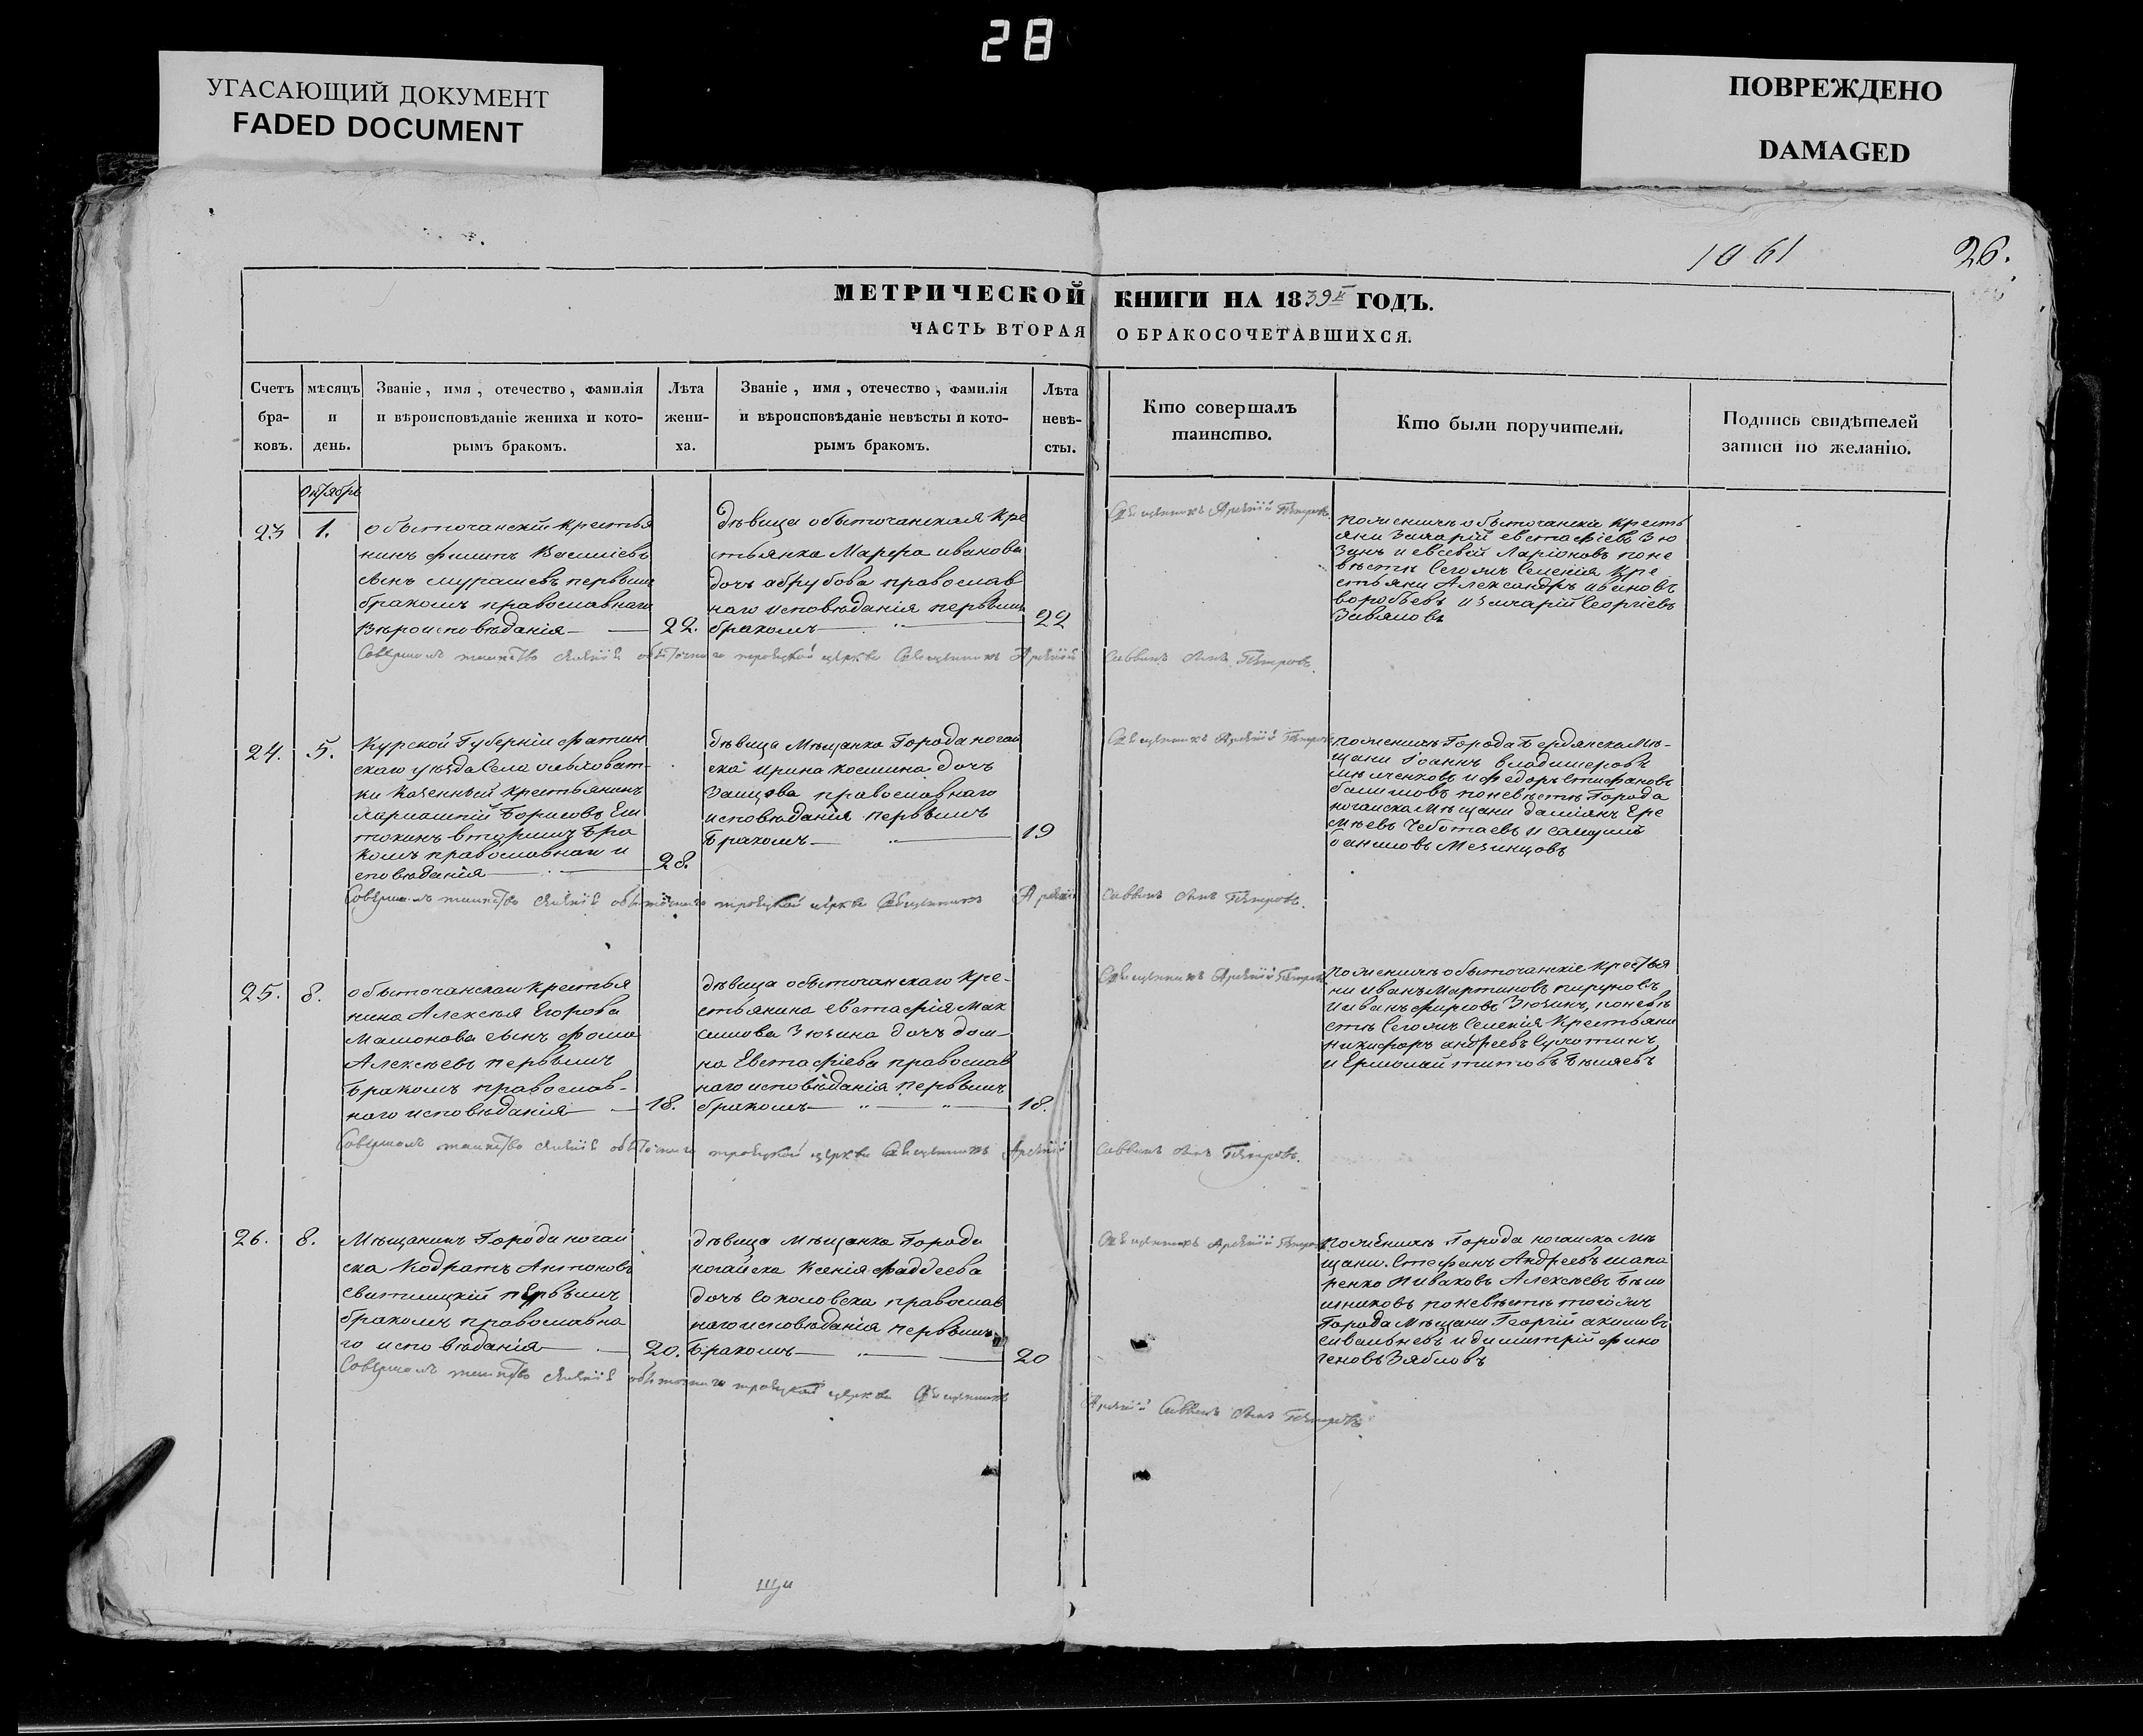 28
УГАСАЮЩИЙ ДОКУМЕНТ
FADED DOCUMENT
ПОВРЕЖДЕНО
DAMAGED
1061
26.
МЕТРИЧЕСКОЙ КНИГИ НА 1839й ГОДЪ.
ЧАСТЬ ВТОРАЯ О БРАКОСОЧЕТАВШИХСЯ.
Счетъ бра-ковъ.
мѣсяцъ и день.
Званіе, имя, отечество, фамилія и вѣроисповѣданіе жениха и кото-рымъ бракомъ.
Лѣта жени-ха.
Званіе, имя, отечество, фамилія и вѣроисповѣданіе невѣсты и кото-рымъ бракомъ.
Лѣта невѣ-сты.
Кто совершалъ таинство.
Кто были поручители.
Подпись свидѣтелей записи по желанію.
Октябрь
23
1.
обыточанскій крестья
нинъ Филипъ Василіевъ
сынъ Мурашевъ первымъ
бракомъ православнаго
вѣроисповѣданія
22.
дѣвица обыточанская кре
стьянка Марфа иванова
дочь абрубова православ
наго исповѣданія первымъ
бракомъ
22
Священникъ Арсѣній Пѣтровъ.
поженихѣ обыточанскіе кресть
яни Захарій евстафіевъ Зю
зинъ и евсевій Ларіоновъ поне
вѣстѣ Сегожъ Селенія кре
стьяни Александръ ивановъ
воробьевъ и Захарій Георгіевъ
Зивяловъ
Совѣршалъ таинство селѣнія обыточнаго троицкой цѣркви Священникъ Арсѣній Саввинъ сынъ Пѣтровъ.
24.
5.
Курской Губерніи Фатиж
скаго уѣзда Села ольховат-
ки казенный крестьянинъ
Харлампій Борисовъ Ем
токинъ вторымъ бра
комъ православнаго и
споведанія
28.
дѣвица Мѣщанка Города ногай
ска Ирина косьмина дочь
Заицова православнаго
исповѣданія первымъ
бракомъ
19
Священникъ Арсѣній Пѣтровъ
поженихѣ Города бердянска Мѣ-
щани Іоаннъ владимеровъ
и Федоръ Стефановъ
поневѣстѣ Города
ногайска Мѣщани даміянъ Ере
мѣевъ Чеботаевъ и Самуилъ
Мезинцовъ
Совѣршалъ таинство селѣнія обыточнаго троицкой цѣркви Священникъ Арсѣній Саввинъ сынъ Пѣтровъ.
25.
8.
обыточанскаго крестья
нина Алексѣя Егорова
Мамонова сынъ Фома
Алексѣевъ первымъ
бракомъ православ-
наго исповѣданія
18.
дѣвица обыточанскаго кре-
стьянина евстафія Мак
симова Зюзина дочь дом-
на Евстафіева православ
наго исповѣданія первымъ
бракомъ
18.
Священникъ Арсѣній Пѣтровъ
поженихѣ обыточанскіе крестья
ни иванъ Мартиновъ пируновъ
и иванъ фирсовъ Зюзинъ, поневѣ
стѣ Сегожъ Селенія крестьяни
никифоръ андреевъ Сухотинъ
и Ермолай титовъ Бѣляевъ
Совѣршалъ таинство селѣнія обыточнаго троицкой цѣркви Священникъ Арсѣній Саввинъ сынъ Пѣтровъ.
26.
8.
Мѣщанинъ Города ногай
ска Кодратъ Антоновъ
Свитлицкій первымъ
бракомъ православна
го исповѣданія
20.
дѣвица Мѣщанка Города
ногайска Ксенія Фаддеева
дочь Соколовска православ
наго исповѣданія первымъ
бракомъ
20
Священникъ Арсѣній Пѣтровъ
поженихѣ Города ногайска Мѣ
щани Стефанъ Андреевъ шапа
ренко Алексѣевъ
поневѣстѣ тогожъ
Города Мѣщани Георгій акимовъ
и димитрій фино
геновъ Зябловъ
Совѣршалъ таинство селѣнія обыточнаго троицкой цѣркви Священникъ
Арсѣній Саввинъ сынъ Пѣтровъ